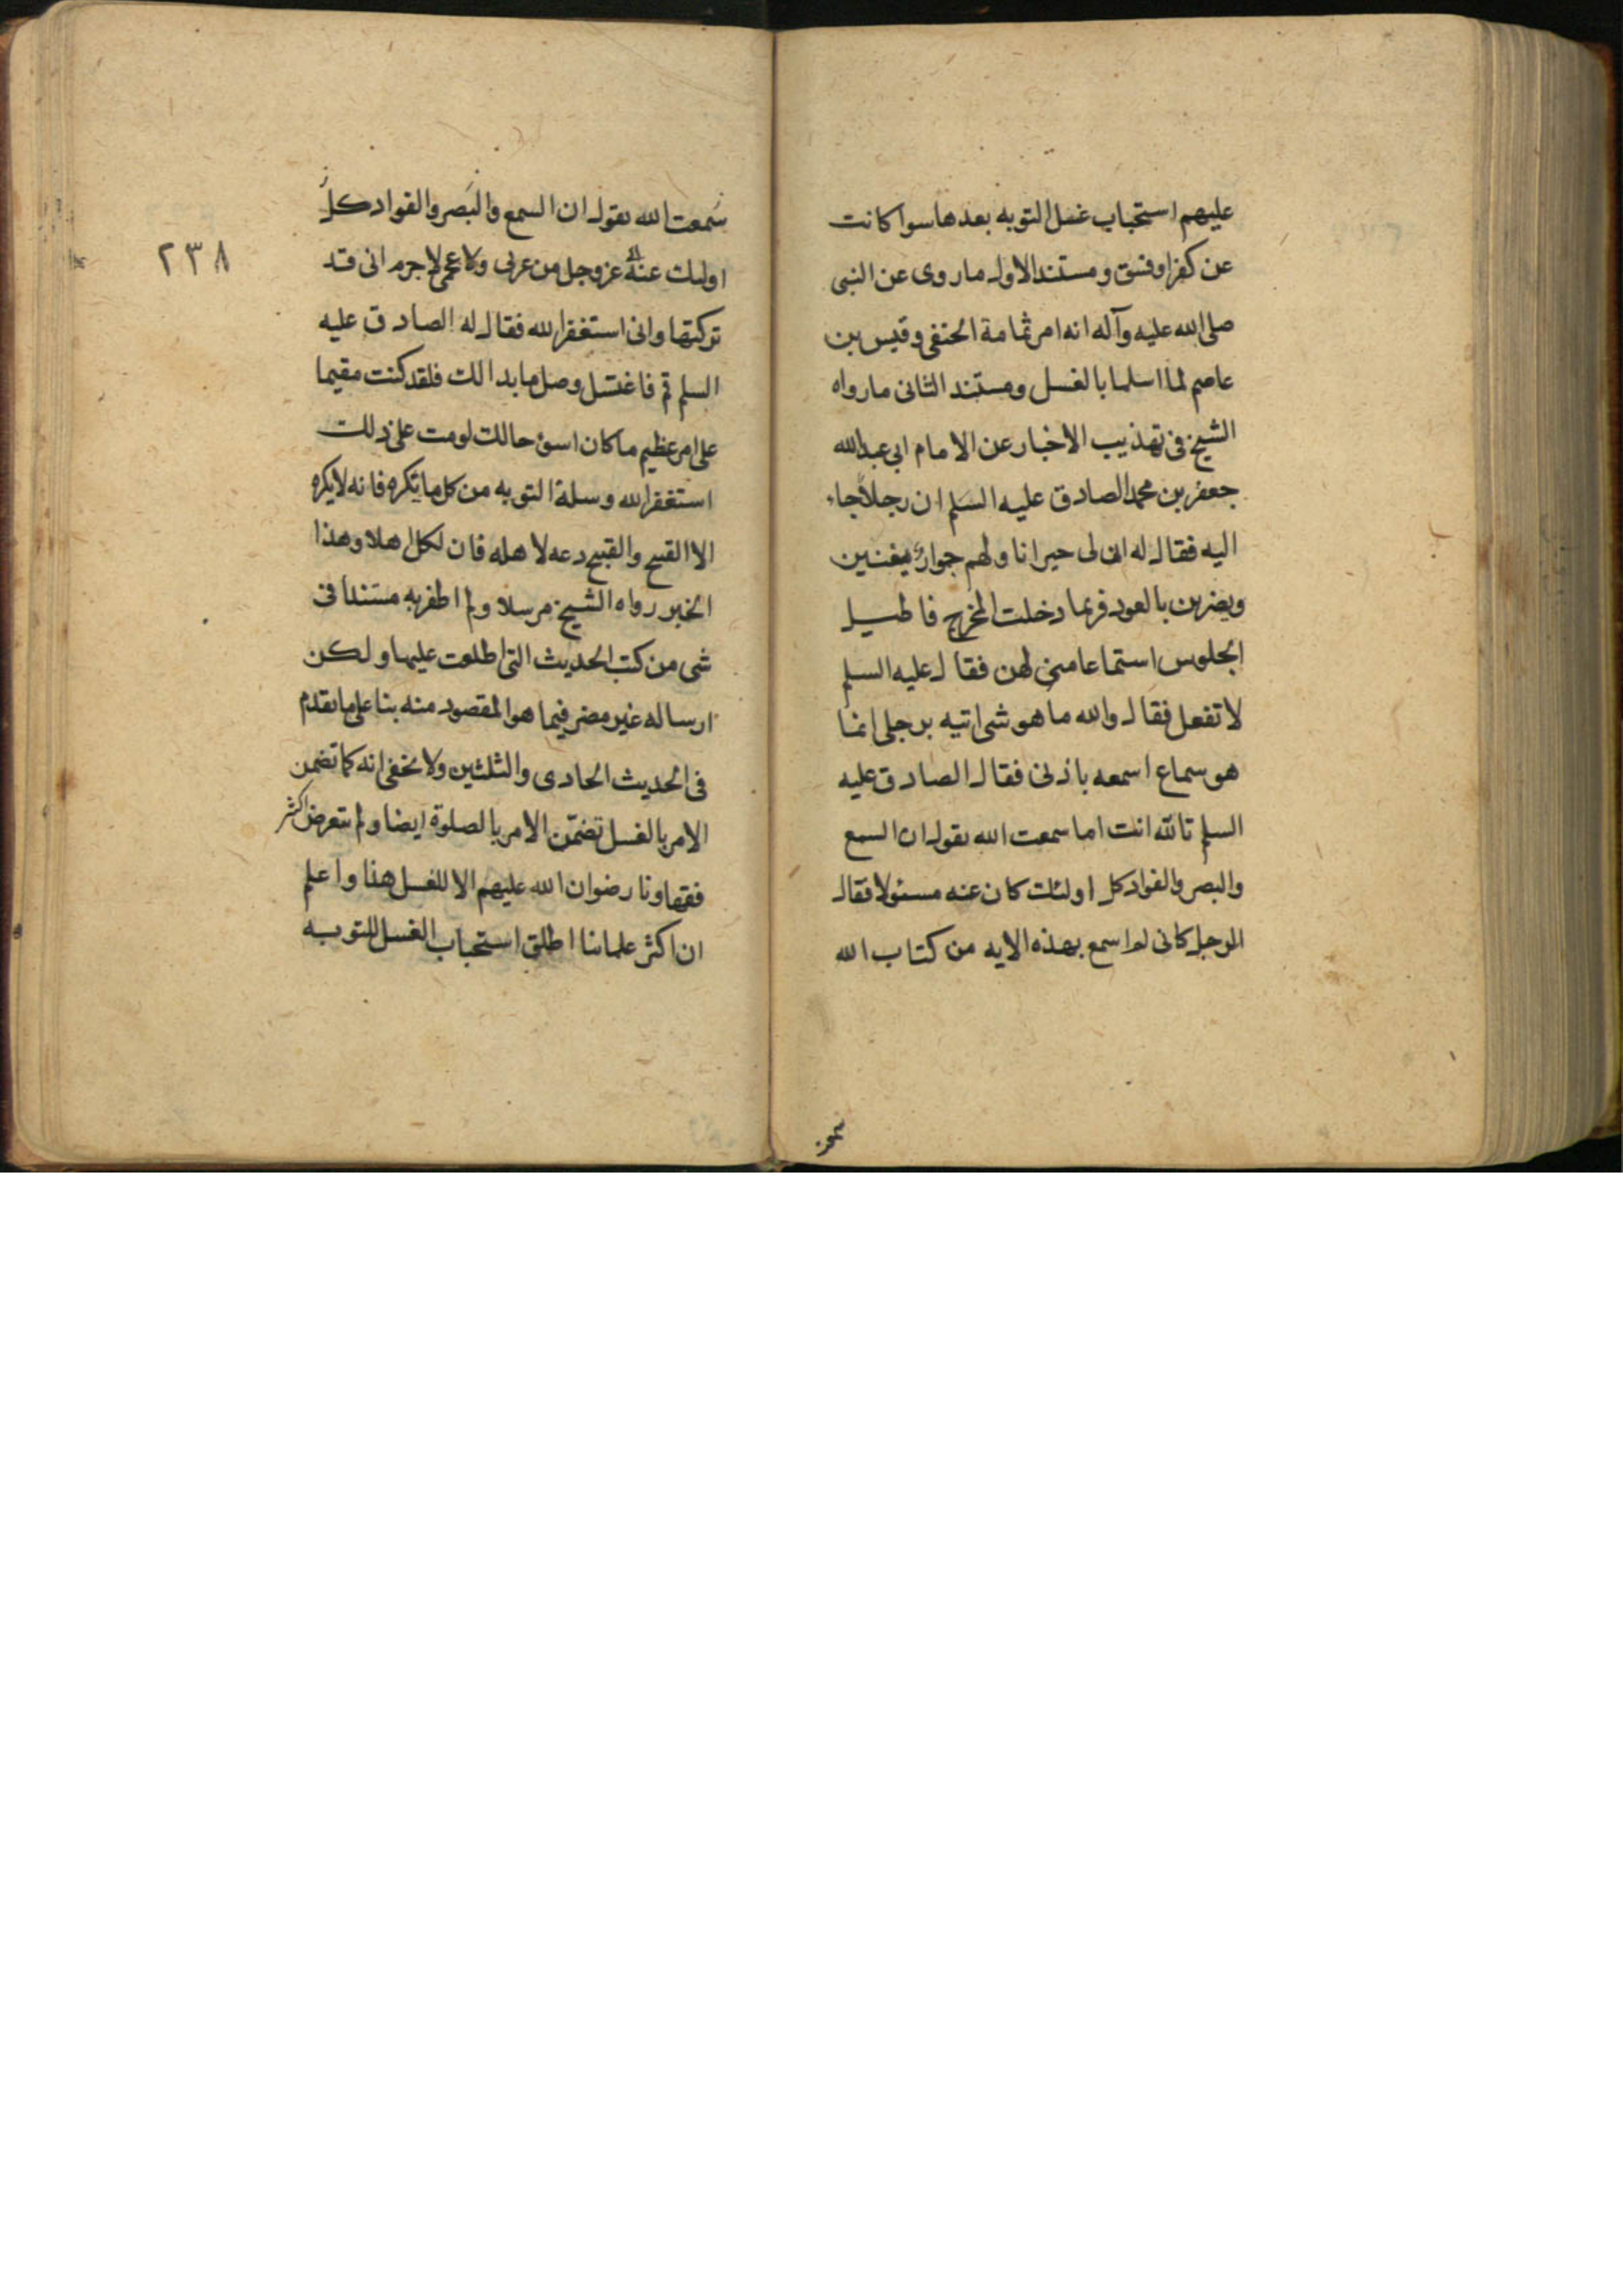 عليهم استحباب غسل التوبه بعدها سوا كانت
عن كفر او فسق و مستند الاول ما روى عن النبى
صلى الله عليه وآله انه امر ثمامة الحنفى وقيس بن
عاصم لما اسلما بالغسل ومستند الثانى ما رواه
الشيخ فى تهذيب الاخبار عن الامام ابى عبد الله
جعفر بن محمد الصادق عليه السلم ان رجلا جاء
اليه فقال له ان لى جيرانا ولهم جوار يغنين
ويضربن بالعود فربما دخلت المخرج فاطيل
الجلوس استماعا منى لهن فقال عليه السلم
لا تفعل فقال والله ما هو شى اتيه برجلى انما
هو سماع اسمعه باذنى فقال الصادق عليه
السلم تالله انت اما سمعت الله يقول ان السمع
والبصر والفواد كل اولئك كان عنه مسئولا فقال
الرجل كانى لم اسمع بهذه الايه من كتاب الله
سمعت الله يقول ان السمع والبصر والفواد كل
اولئك عنه عز وجل من عربى ولا عجمى لا جرم انى قد
تركتها وانى استغفر الله فقال له الصادق عليه
السلم قم فاغتسل وصل ما بدا لك فلقد كنت مقيما
على امر عظيم ما كان اسوء حالك لو مت على ذلك
استغفر الله وسله التوبه من كل ما يكره فانه لا يكره
الا القبيح والقبيح دعه لاهله فان لكل اهلا وهذا
الخبر رواه الشيخ مرسلا ولم اظفر به مسندا فى
شى من كتب الحديث التى اطلعت عليها ولكن
ارساله غير مضر فيما هو المقصود منه بنا على ما تقدم
فى الحديث الحادى والثلثين ولا يخفى انه كما تضمن
الامر بالغسل تضمّن الامر بالصلوة ايضا ولم يتعرض اكثر
فقهاونا رضوان الله عليهم الا للغسل هنا واعلم
ان اكثر علمائنا اطلق استحباب الغسل للتوبه
٢٣٨